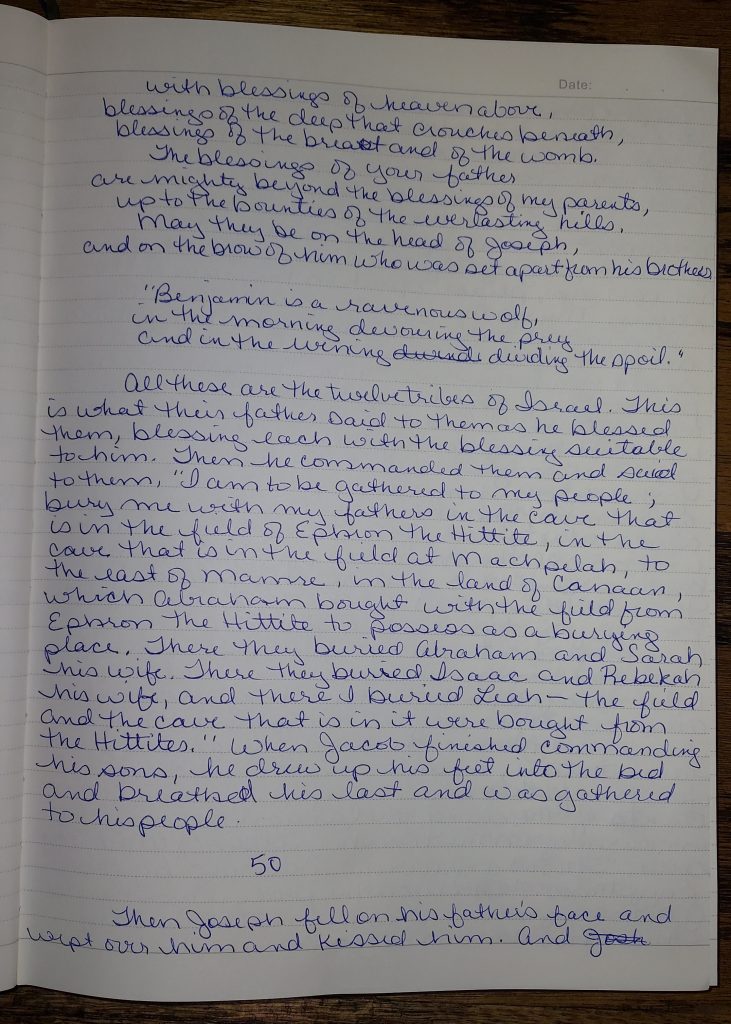 Date:
with blessings of heaven above,
blessings of the deep that crouches beneath,
blessings of the breast and of the womb.
The blessings of your father
are mighty beyond the blessings of my parents,
up to the bounties of the everlasting hills.
May they be on the head of Joseph,
and on the brow of him who was set apart from his brothers
"Benjamin is a ravenous wolf,
in the morning devouring the prey
and in the evening dividing the spoil."
All these are the twelve tribes of Israel. This
is what their father said to them as he blessed
them, blessing each with the blessing suitable
to him. Then he commanded them and said
to them, "I am to be gathered to my people;
bury me with my fathers in the cave that
is in the field of Ephron the Hittite, in the
cave that is in the field at Machpelah, to
the east of Mamre, in the land of Canaan,
which Abraham bought with the field from
Ephron the Hittite to possess as a burying
place. There they buried Abraham and Sarah
his wife. There they buried Isaac and Rebekah
his wife, and there I buried Leah— the field
and the cave that is in it were bought from
the Hittites." When Jacob finished commanding
his sons, he drew up his feet into the bed
and breathed his last and was gathered
to his people.
50
Then Joseph fell on his father's face and
wept over him and kissed him. And